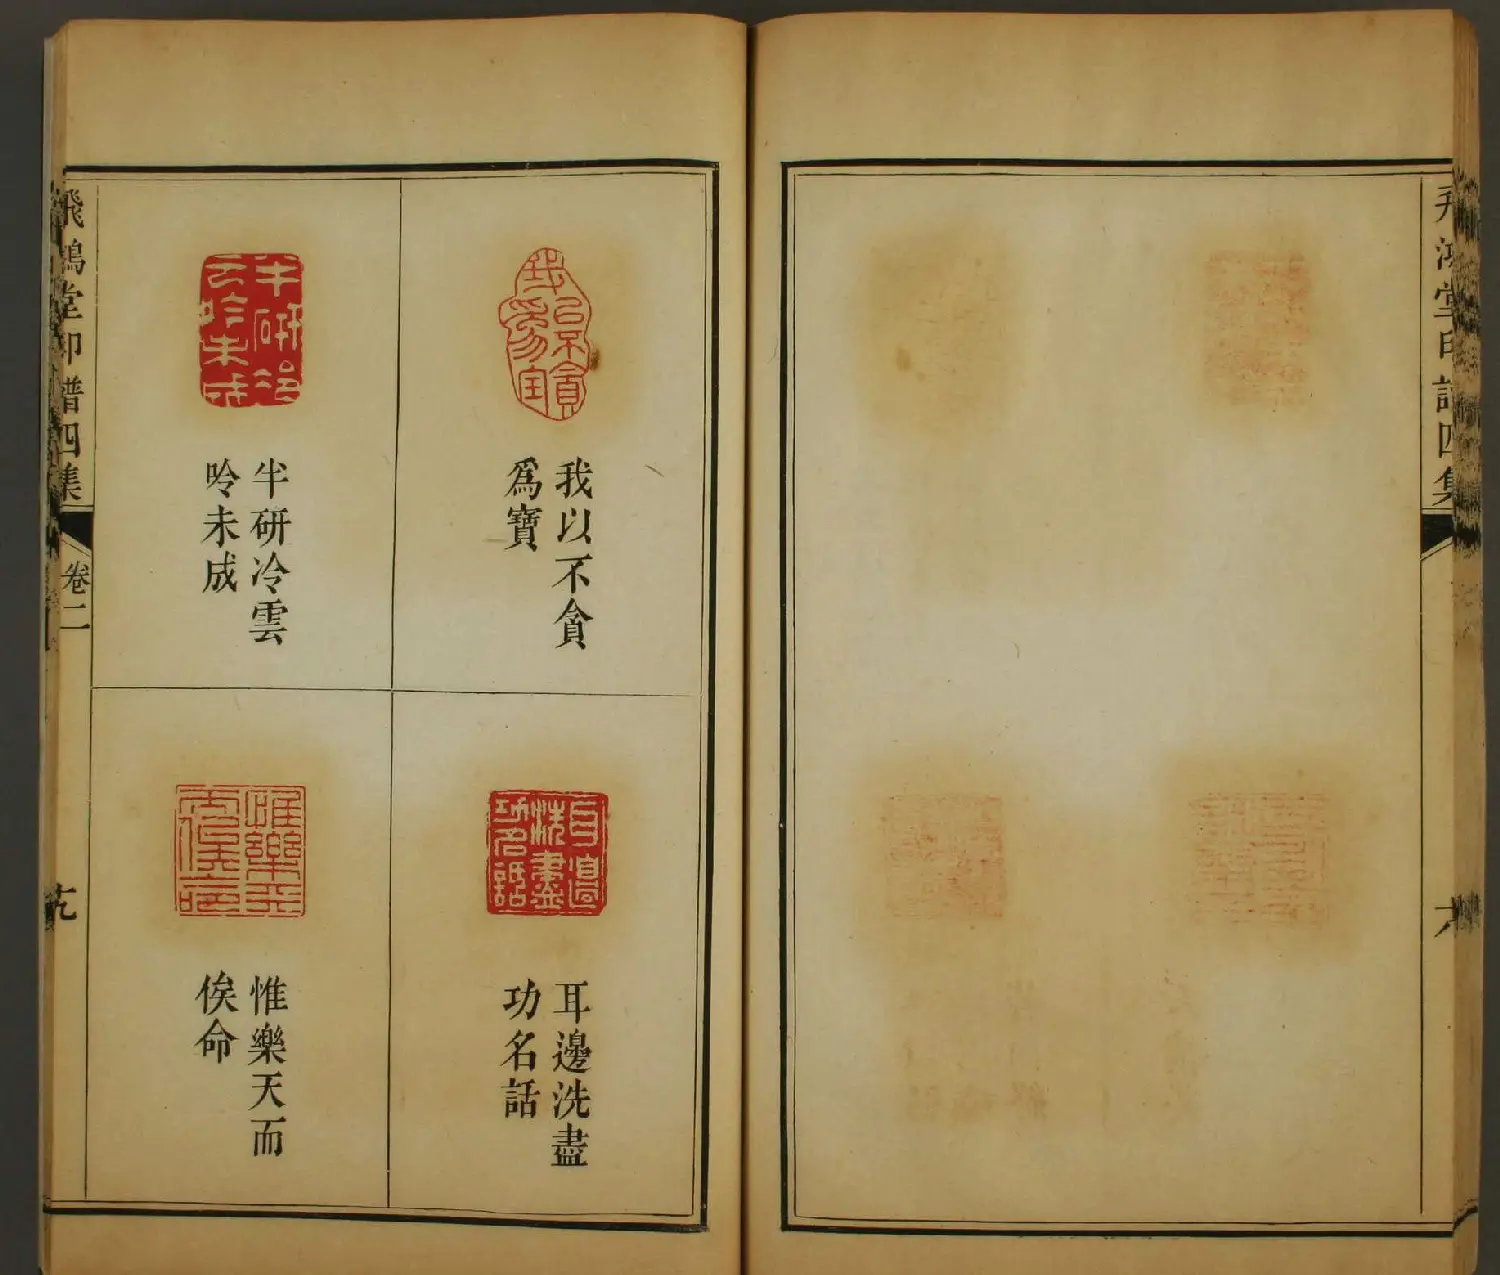 飛鴻堂印譜四集
六
我以不貪
爲寶
半研冷雲
吟未成
耳邊洗盡
功名話
惟樂天而
俟命
飛鴻堂印譜四集
卷二
十九